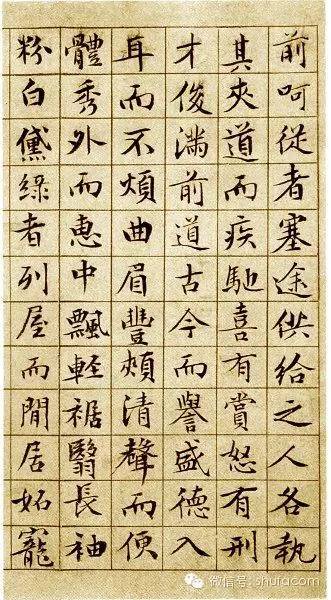 前呵從者塞途供給之人各執
其夾道而疾馳喜有賞怒有刑
才俊滿前道古今而譽盛德入
耳而不煩曲眉豐頰清聲而便
體秀外而惠中飄輕裾翳長袖
粉白黛綠者列屋而閒居妬寵
微信号: shufacom